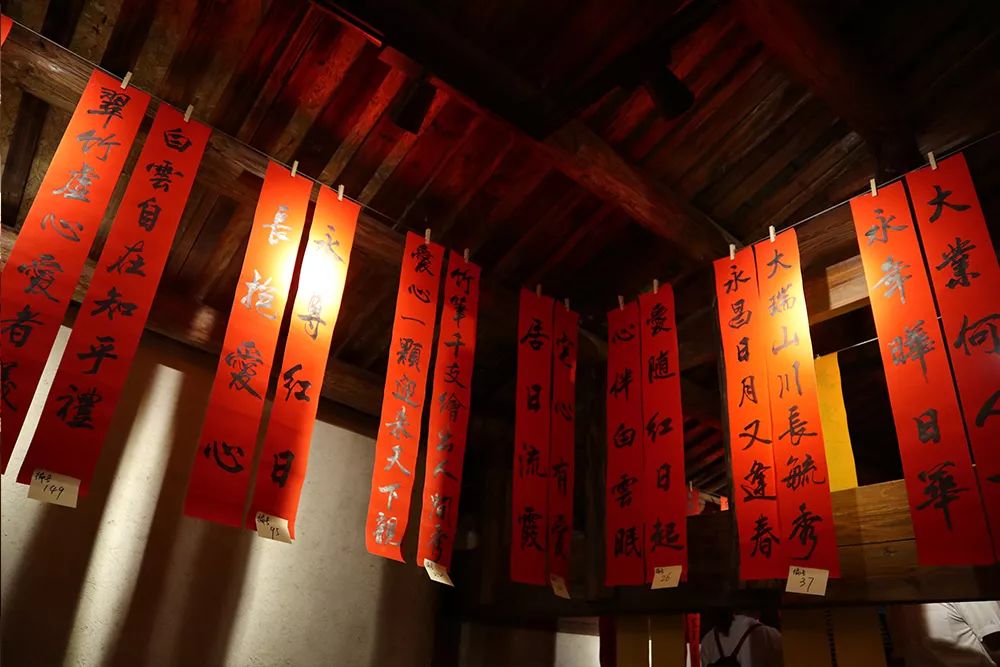 翠竹虛心愛者
白雲自在知乎禮
編号
149
長抱愛心
永尊紅日
編号
愛心一顆迎來天下
竹筆千支繪出人間
居日流霞
宅心有愛
心伴白雲眠
愛隨紅日起
26
永昌日月又逢春
大瑞山川長毓秀
編号
37
永年暉日華
大業何